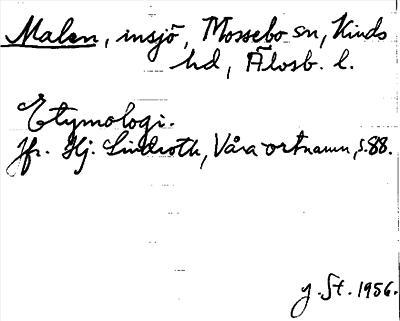 Malen, insjö, Mossebo sn, Kinds
hd, Älvsb. l.
Etymologi.
Jfr. Hj. Lindroth, Våra ortnamn, s. 88.
g. St. 1956.